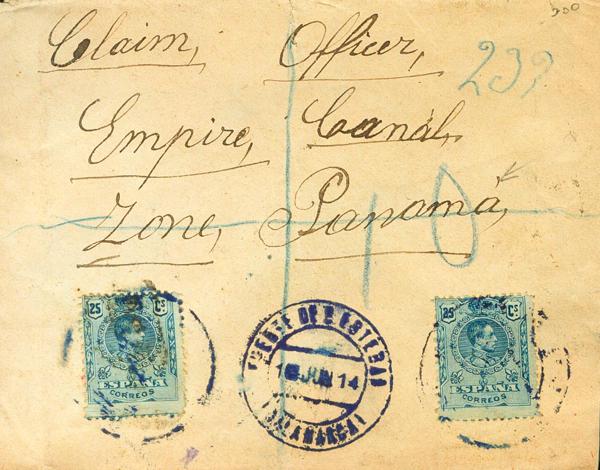 200
Claim, Officer,
239
Empire, Canal,
Zone, Panamá,
10
25 Cs
ESPAÑA
CORREOS
FUENTE DE S. ESTEBAN
JUN 14
(SALAMANCA)
25 Cs
ESPAÑA
CORREOS